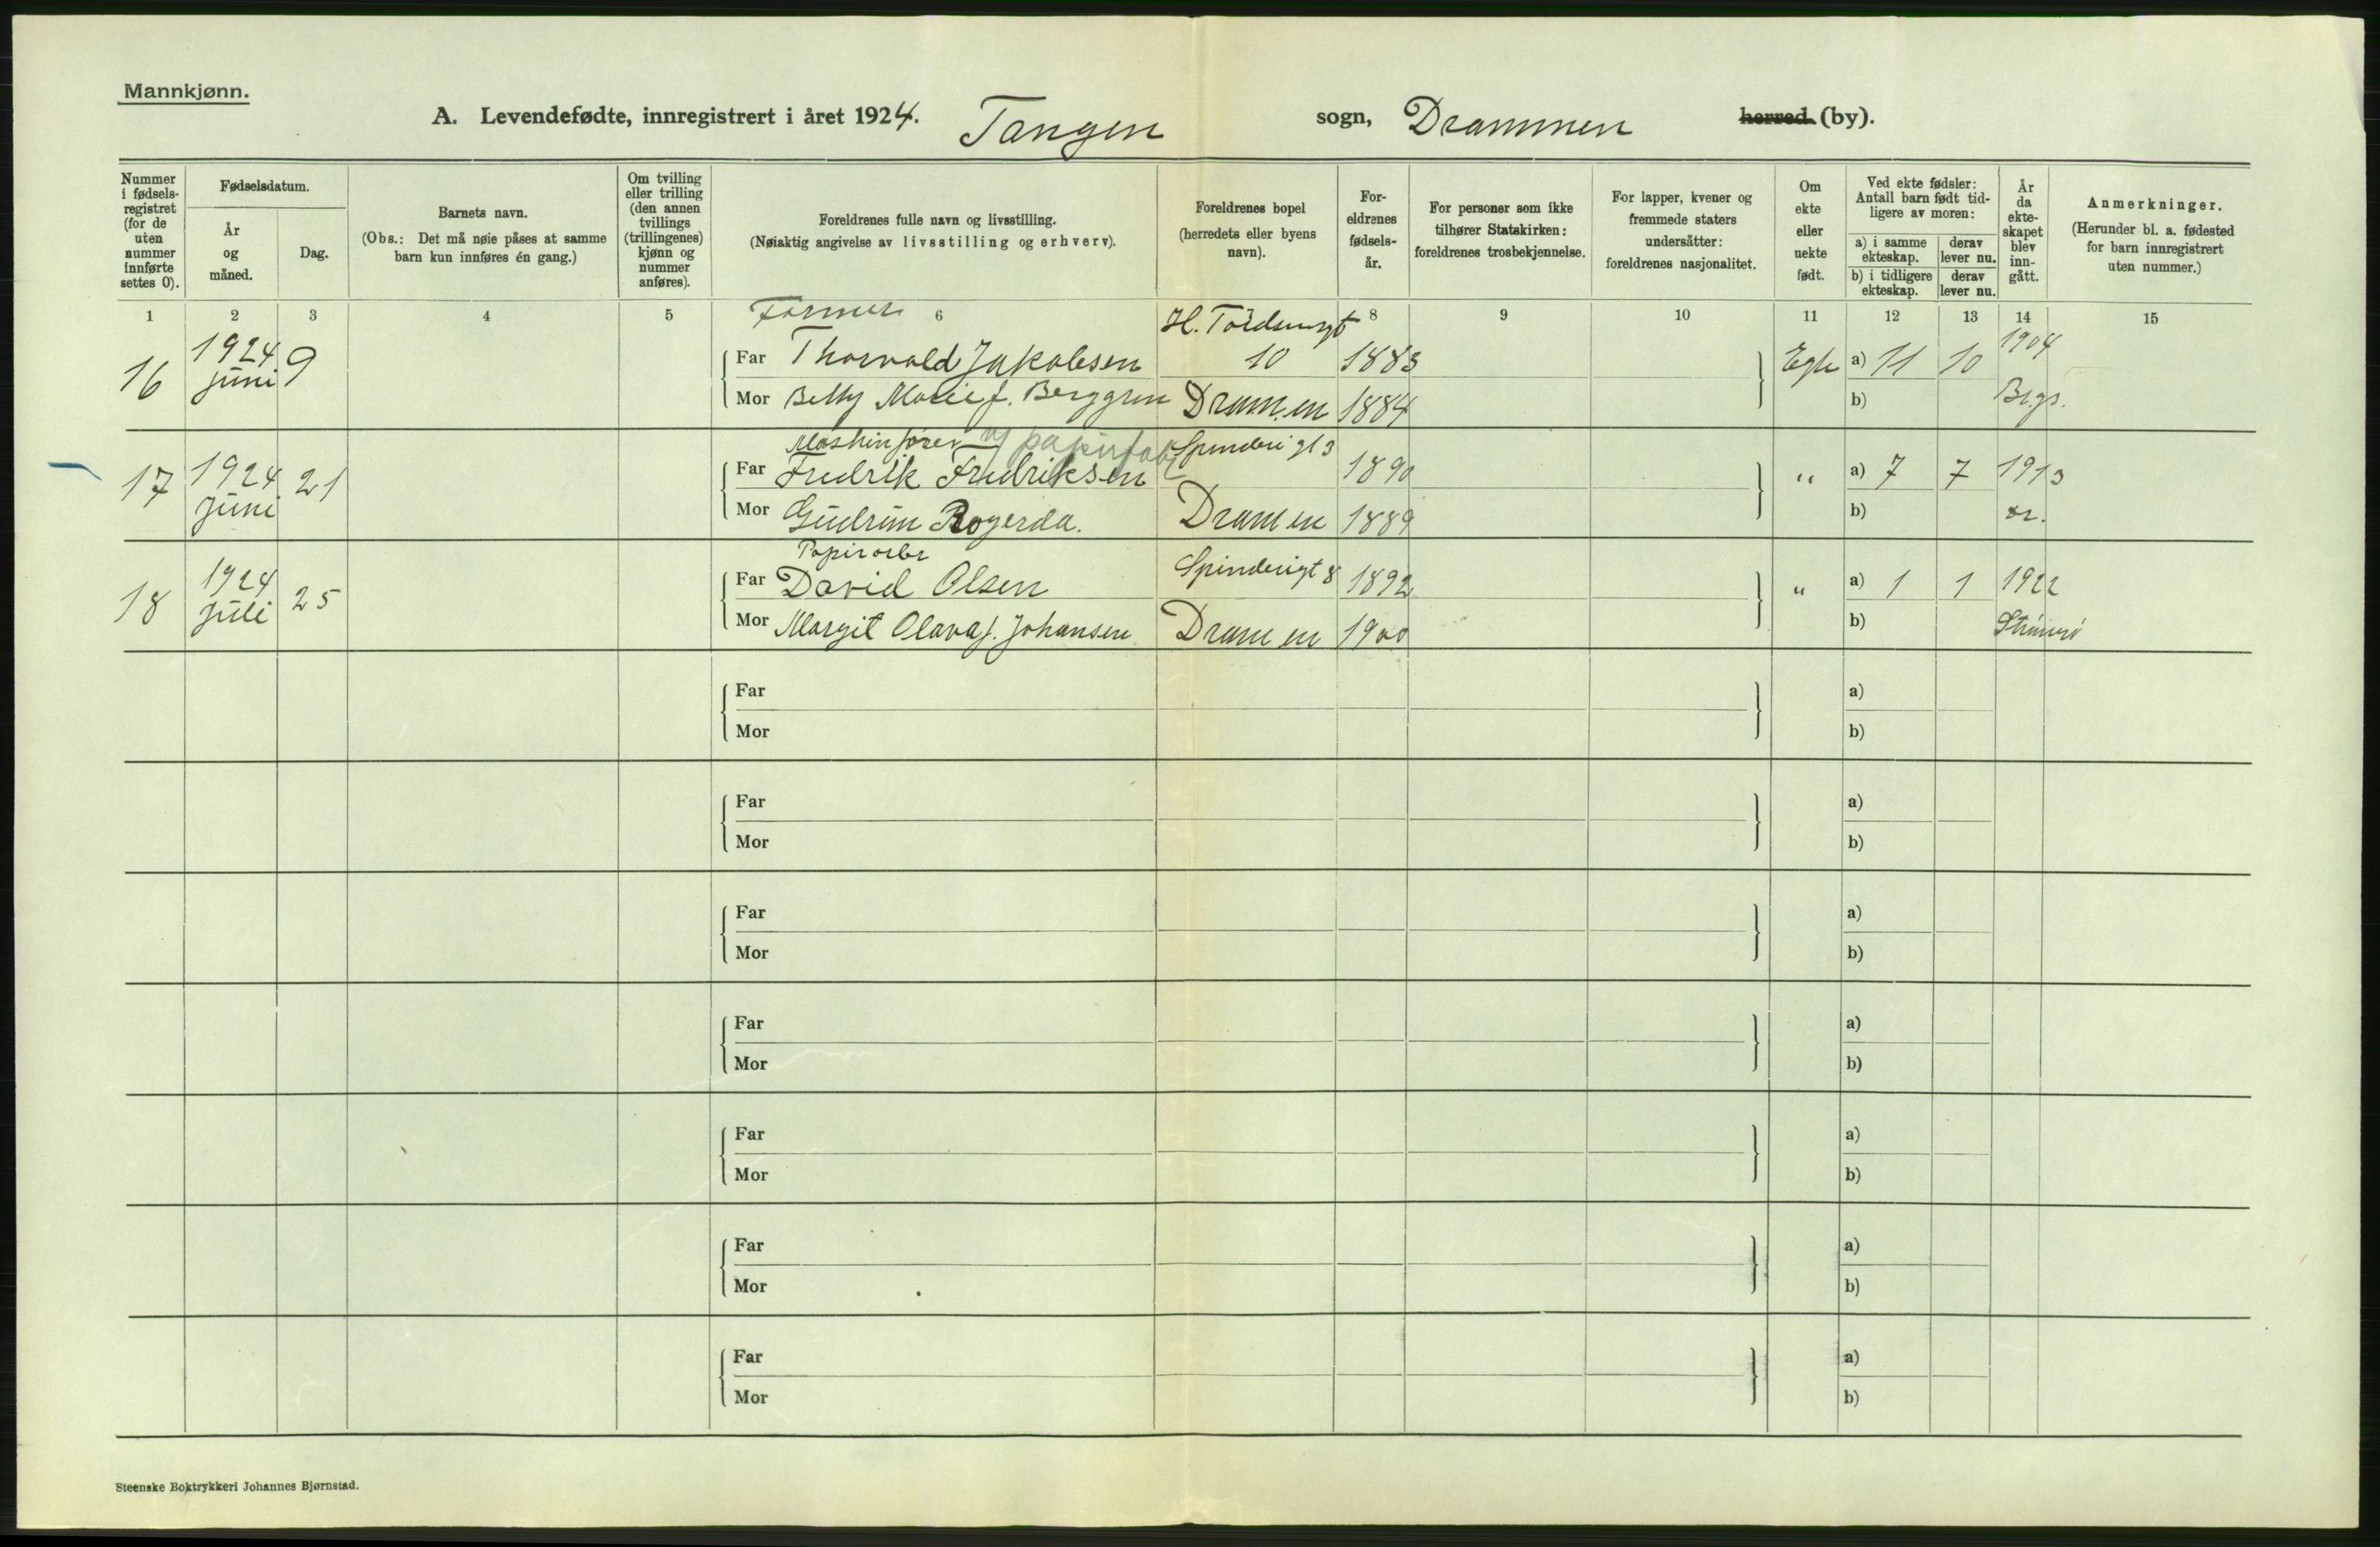 Mannkjønn.
A. Levendefødte, innregistrert i året 1924. Tangen sogn, Drammen herred (by).
Nummer i fødselsregistret (for de uten nummer innførte settes 0).
Fødselsdatum.
År og måned.
Dag.
Barnets navn.
(Obs.: Det må nøie påses at samme barn kun innføres én gang.)
Om tvilling eller trilling (den annen tvillings (trillingenes) kjønn og nummer anføres).
Foreldrenes fulle navn og livsstilling.
(Nøiaktig angivelse av livsstilling og erhverv).
Foreldrenes bopel (herredets eller byens navn).
Foreldrenes fødselsår.
For personer som ikke tilhører Statskirken: foreldrenes trosbekjennelse.
For lapper, kvener og fremmede staters undersåtter: foreldrenes nasjonalitet.
Om ekte eller uekte født.
Ved ekte fødsler: Antall barn født tidligere av moren:
a) i samme ekteskap. derav lever nu.
b) i tidligere ekteskap. derav lever nu.
År da ekteskapet blev inngått.
Anmerkninger.
(Herunder bl. a. fødested for barn innregistrert uten nummer.)
1 2 3 4 5 6 8 9 10 11 12 13 14 15
Former
16 1924 juni 9 Far Thorvald Jakobsen 10 1883 Egte a) 11 10 1904
Mor Betty Marie f. Berggren Drammen 1884 b)
Maskinfører papirfabr Spinderigt 3
17 1924 Juni 21 Far Fredrik Fredriksen 1890 " a) 7 7 1913
Mor Gudrun Rogerda. Drammen 1889 b)
Papirarbr Spinderigt 8
18 1924 juli 25 Far David Olsen 1892 " a) 1 1 1922
Mor Margit Olava f. Johansen Drammen 1900 b)
Far a)
Mor b)
Far a)
Mor b)
Far a)
Mor b)
Far a)
Mor b)
Far a)
Mor b)
Far a)
Mor b)
Far a)
Mor b)
Steenske Boktrykkeri Johannes Bjørnstad.